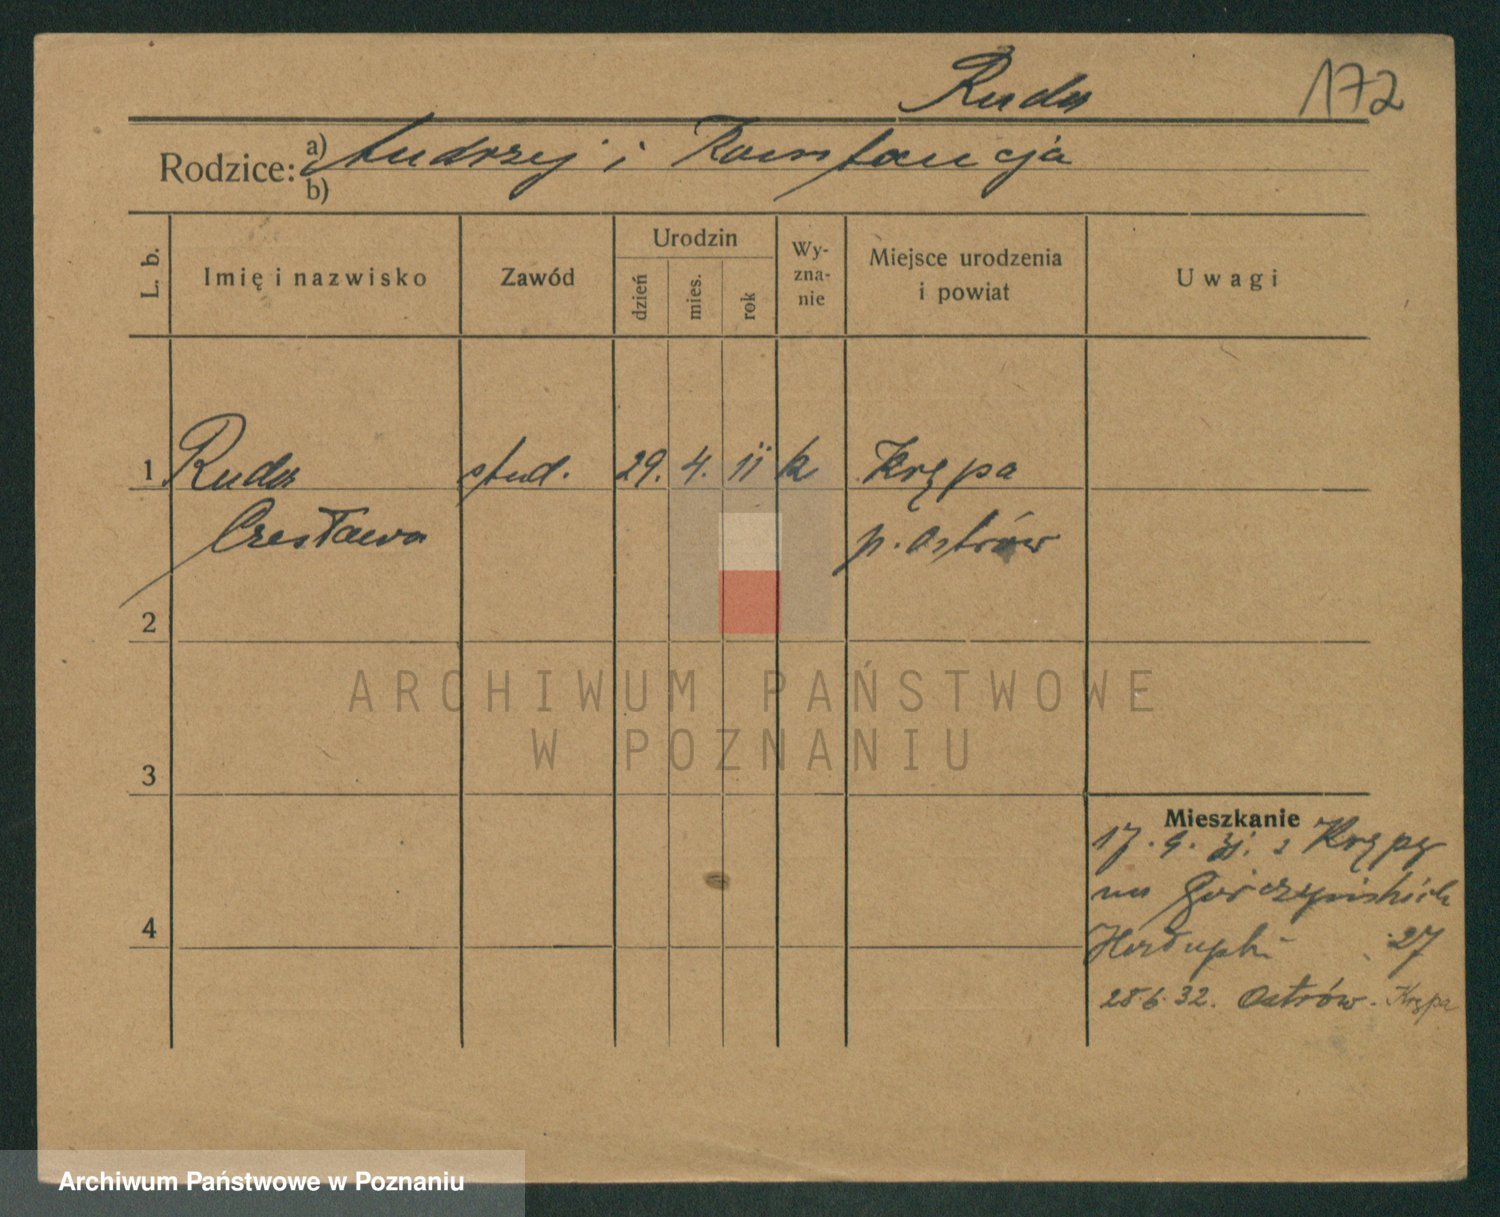 Ruda 172
Rodzice: a) Andrzej i Konstancja
b)
L. b. Imię i nazwisko Zawód Urodzin dzień mies. rok Wy-zna-nie Miejsce urodzenia i powiat Uwagi
1 Ruda stud. 29. 4. 11 k Krępa
Czesława p. Ostrów
2
ARCHIWUM PAŃSTWOWE
W POZNANIU
3
Mieszkanie
17. 9. 31. z Krępy
na Górczyńskich
4
27
28.6.32. Ostrów - Krępa
Archiwum Państwowe w Poznaniu